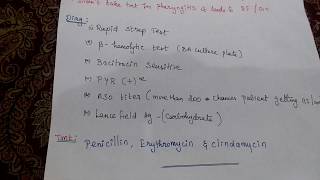 don't take test in Pharyngitis it leads to RF / GN
Diag:
Rapid strep Test
β- hemolytic test (BA culture plate)
Bacitracin Sensitive
PYR (+)ve
ASO titer (more than 200 = chances patient getting RF/
Lancefield Ag - (Carbohydrate)
Tmt: Penicillin, Erythromycin & clindamycin